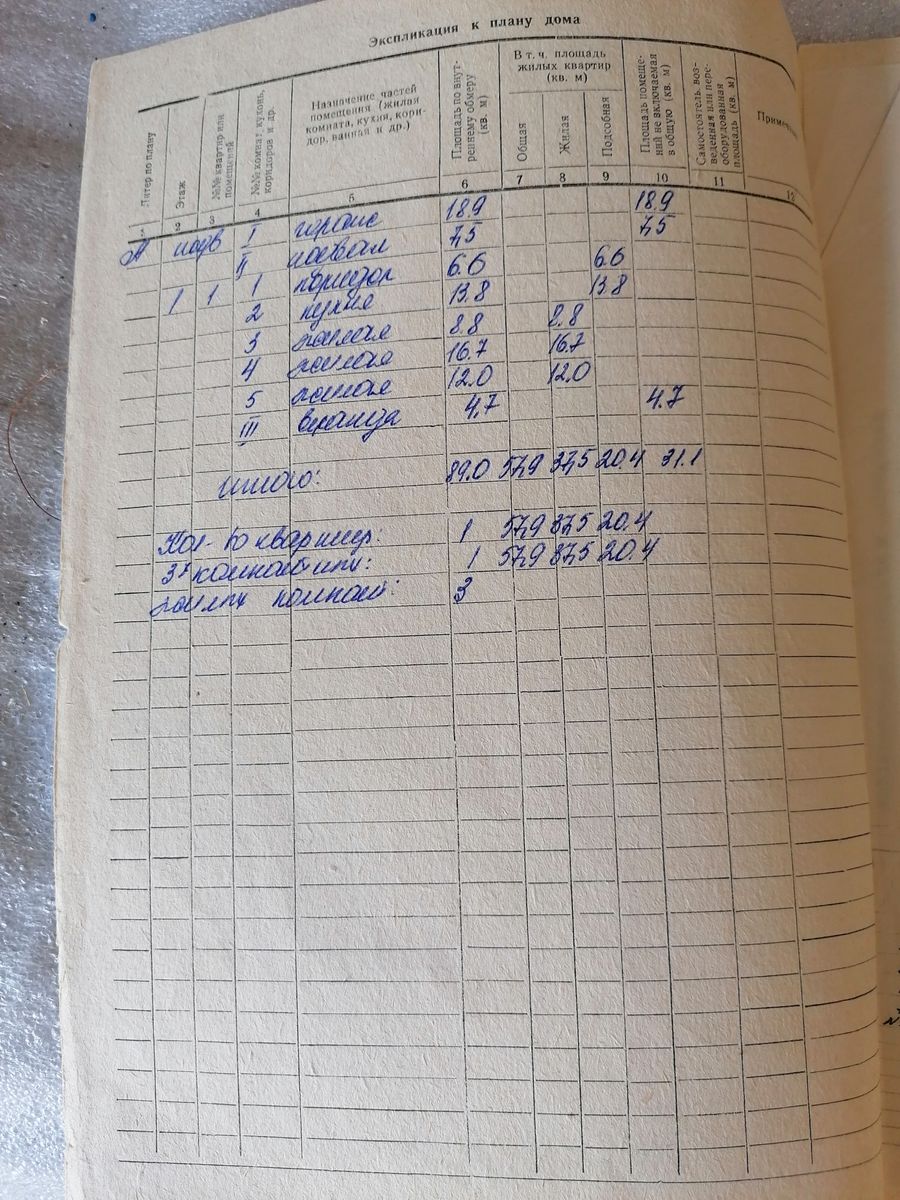 Экспликация к плану дома
Литер по плану
Этаж
№№ квартир или помещений
№№ комнат, кухонь, коридоров и др.
Назначение частей помещения (жилая комната, кухня, коридор, ванная и др.)
Площадь по внутреннему обмеру (кв. м)
В т. ч. площадь жилых квартир (кв. м)
Общая
Жилая
Подсобная
Площадь помещений не включаемая в общую (кв. м)
Самостоятель. возведенная или переоборудованная площадь (кв. м)
1 2 3 4 5 6 7 8 9 10 11 12
А подв I гараж 18.9 18.9
II подвал 7,5 7,5
1 1 1 коридор 6.6 6.6
2 кухня 13.8 13.8
3 жилая 8.8 8.8
4 жилая 16.7 16.7
5 жилая 12.0 12.0
III веранда 4,7 4.7
Итого: 89.0 57,9 37,5 20.4 31.1
Кол-во квартир: 1 57,9 37,5 20.4
3х комнатн: 1 57,9 37,5 20.4
жилых комнат: 3